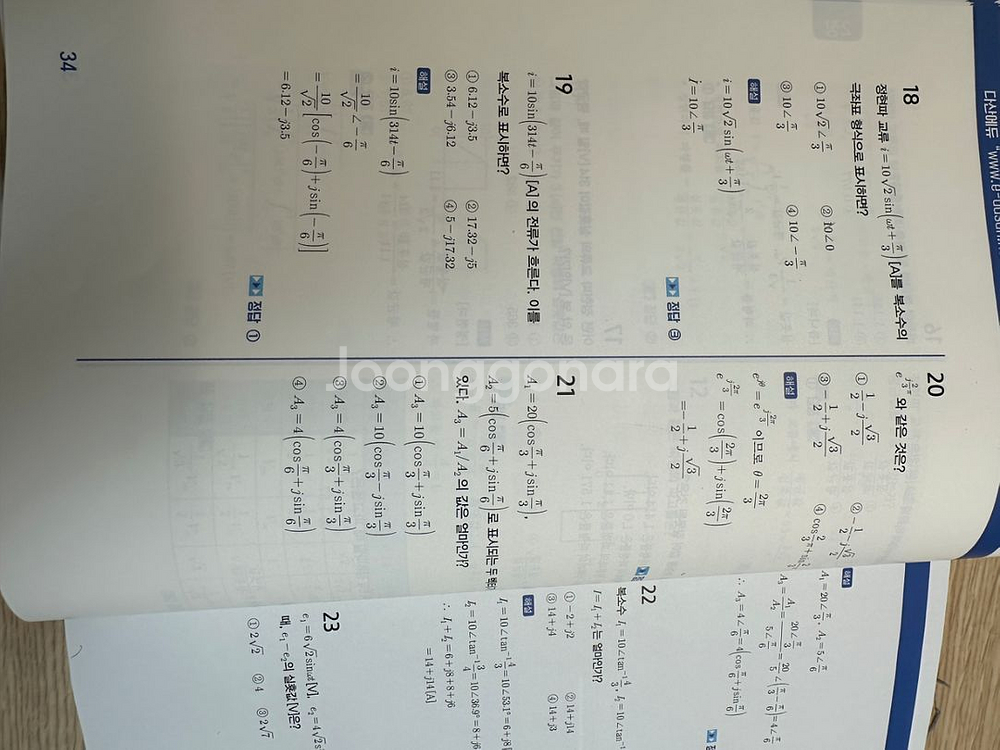 다산에듀 "www.e-dasan
18
정현파 교류 i=10√2 sin(ωt+π/3)[A]를 복소수의
극좌표 형식으로 표시하면?
① 10√2∠π/3 ② 10∠0
③ 10∠π/3 ④ 10∠-π/3
해설
i=10√2 sin(ωt+π/3)
I=10∠π/3
정답 ③
19
i=10sin(314t-π/6)[A]의 전류가 흐른다. 이를
복소수로 표시하면?
① 6.12-j3.5 ② 17.32-j5
③ 3.54-j6.12 ④ 5-j17.32
해설
i=10sin(314t-π/6)
=10/√2∠-π/6
=10/√2[cos(-π/6)+jsin(-π/6)]
=6.12-j3.5
정답 ①
34
20
e^(j2/3π)와 같은 것은?
① 1/2-j√3/2 ② -1/2-j√3/2
③ -1/2+j√3/2 ④ cos2/3π+
해설
e^(jθ)=e^(j2π/3) 이므로 θ=2π/3
e^(j2π/3)=cos(2π/3)+jsin(2π/3)
=-1/2+j√3/2
21
A₁=20(cosπ/3+jsinπ/3),
A₂=5(cosπ/6+jsinπ/6)로 표시되는 두
있다. A₃=A₁/A₂의 값은 얼마인가?
① A₃=10(cosπ/3+jsinπ/3)
② A₃=10(cosπ/3-jsinπ/3)
③ A₃=4(cosπ/3+jsinπ/3)
④ A₃=4(cosπ/6+jsinπ/6)
해설
A₁=20∠π/3, A₂=5∠π/6
A₃=A₁/A₂=20∠π/3/5∠π/6=20/5∠(π/3-π/6)=4∠π/6
∴ A₃=4∠π/6=4(cosπ/6+jsinπ/6)
22
복소수 I₁=10∠tan⁻¹4/3, I₂=10∠tan⁻¹
I=I₁+I₂는 얼마인가?
① -2+j2 ② 14+j14
③ 14+j4 ④ 14+j3
해설
I₁=10∠tan⁻¹4/3=10∠53.1°=6+j8
I₂=10∠tan⁻¹3/4=10∠36.9°=8+j6
∴ I₁+I₂=6+j8+8+j6
=14+j14[A]
23
e₁=6√2sinωt[V], e₂=4√2s
때, e₁-e₂의 실횻값[V]은?
① 2√2 ② 4 ③ 2√7
Joonggonara